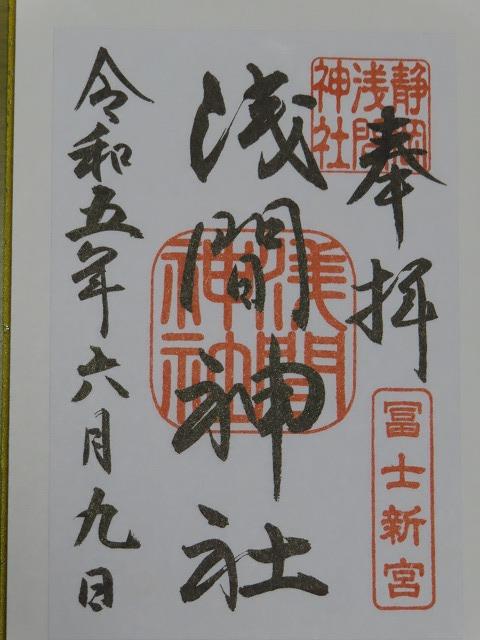 奉拝
静岡浅間神社
冨士新宮
浅間神社
浅間神社
令和五年六月九日